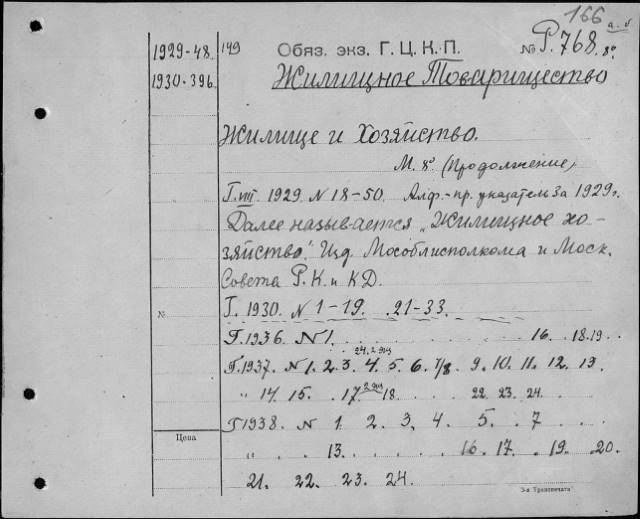 166 а-б
1929-48. 149 Обяз. экз. Г. Ц. К. П. № Р.768. 8°
1930-396. Жилищное Товарищество
Жилище и Хозяйство.
М. 8° (Продолжение)
Г. VIII 1929 N 18-50. Алф.-пр. указатель за 1929 г.
Далее называется „Жилищное хо-
зяйство". Изд. Мособлисполкома и Моск.
Совета Р. К. и КД.
№ Г. 1930. N 1-19. .21-33.
Г. 1936. N 1. 16. 18.19
24. 2 экз
Г. 1937. N 1. 2. 3. 4. 5. 6. 7/8 9. 10. 11. 12. 13.
" 14. 15. . 17 2 экз 18 22. 23. 24.
Г 1938. N 1. 2. 3, 4. 5. . 7
Цена
" 13. 16. 17. . 19. . 20.
21. 22. 23. 24.
3-я Транспечати